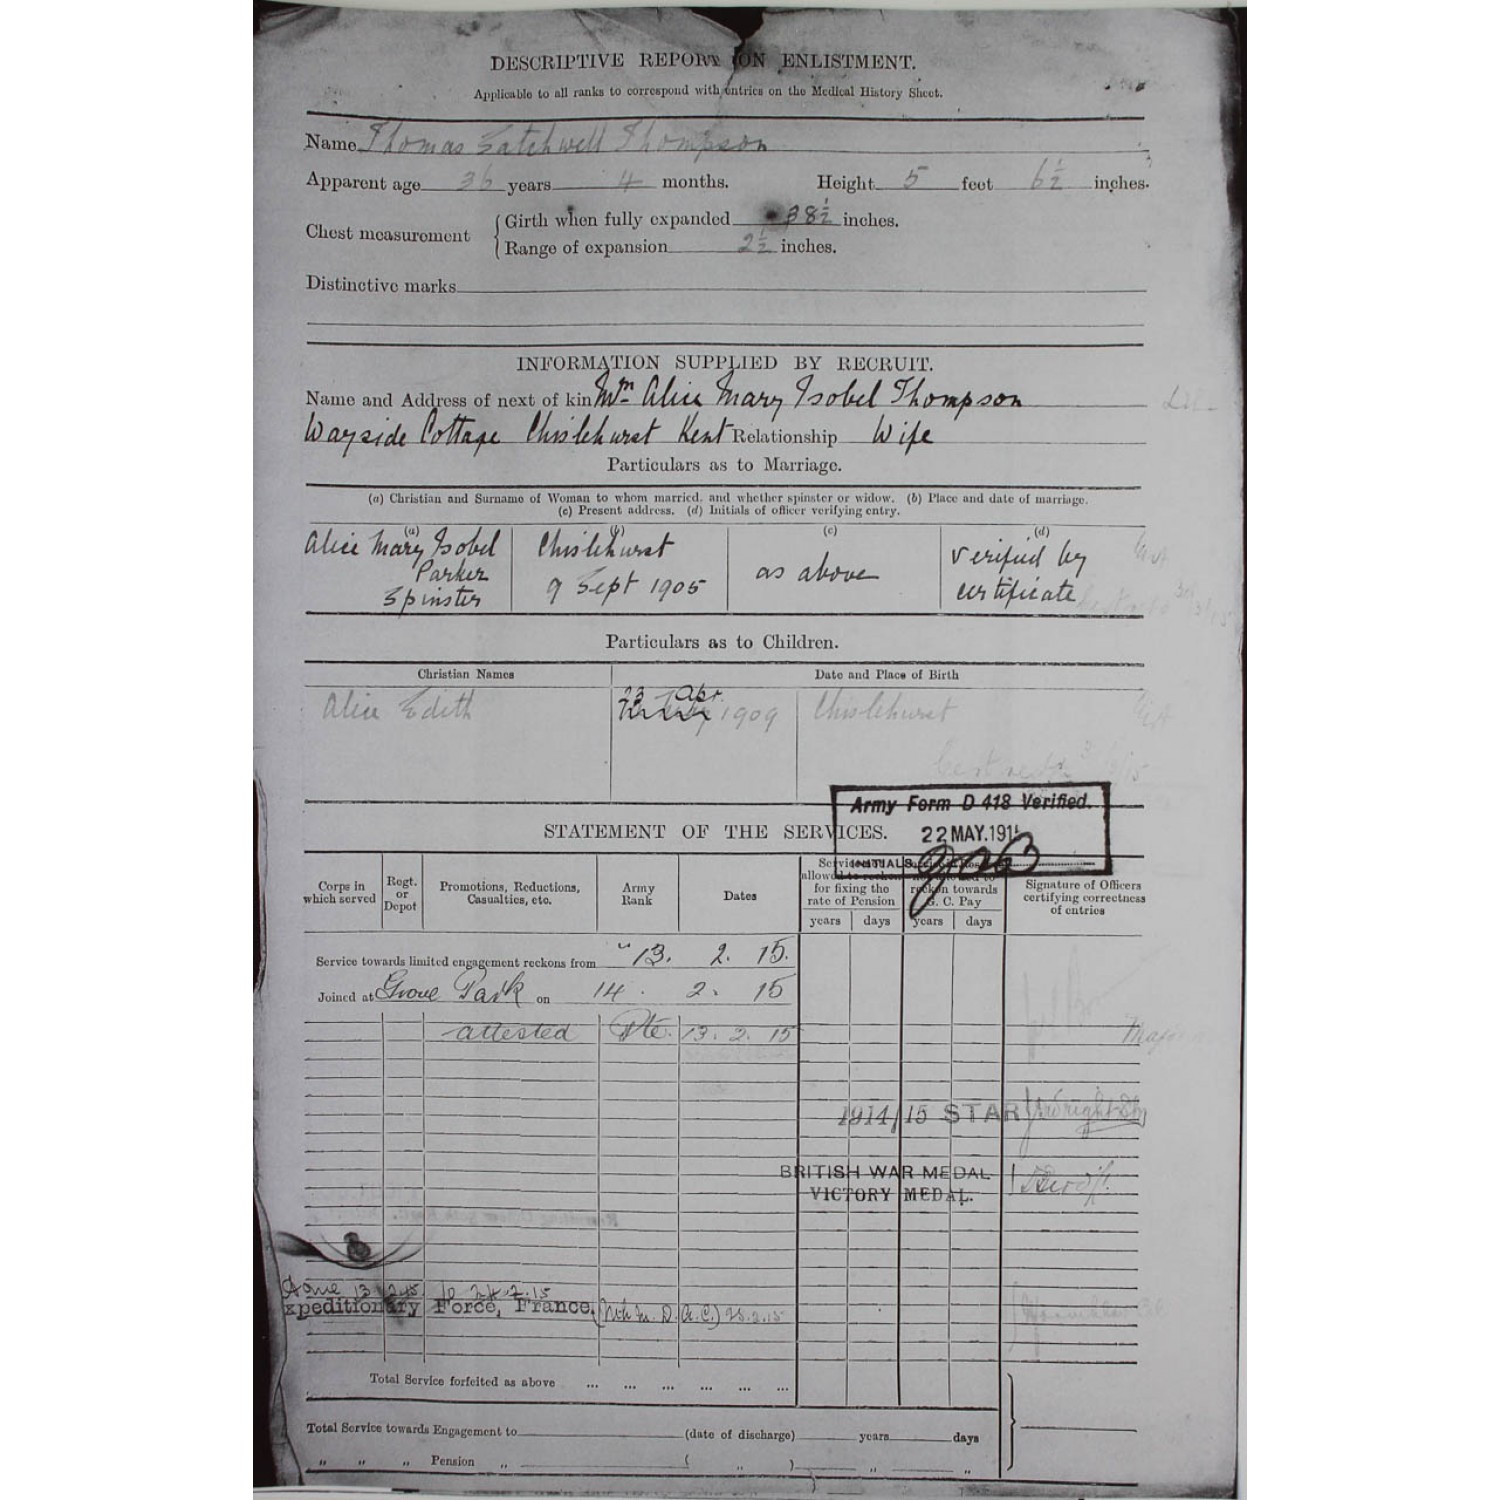 DESCRIPTIVE REPORT ON ENLISTMENT.
Applicable to all ranks to correspond with entries on the Medical History Sheet.
Name Thomas Satchwell Thompson
Apparent age 36 years 4 months. Height 5 feet 6½ inches.
Chest measurement { Girth when fully expanded 38½ inches.
Range of expansion 2½ inches.
Distinctive marks
INFORMATION SUPPLIED BY RECRUIT.
Name and Address of next of kin Mrs Alice Mary Isobel Thompson
Wayside Cottage Chislehurst Kent Relationship Wife
Particulars as to Marriage.
(a) Christian and Surname of Woman to whom married, and whether spinster or widow. (b) Place and date of marriage.
(c) Present address. (d) Initials of officer verifying entry.
(a) (b) (c) (d)
Alice Mary Isobel Parker Spinster
Chislehurst 9 Sept 1905
as above
verified by certificate
Particulars as to Children.
Christian Names Date and Place of Birth
Alice Edith 23 Apr. 1909 Chislehurst
Army Form D 418 Verified.
22 MAY.191
INITIALS
STATEMENT OF THE SERVICES.
Corps in which served
Regt. or Depot
Promotions, Reductions, Casualties, etc.
Army Rank
Dates
Service allowed to reckon for fixing the rate of Pension
reckon towards G. C. Pay
Signature of Officers certifying correctness of entries
years days years days
Service towards limited engagement reckons from 13. 2. 15.
Joined at Grove Park on 14. 2. 15
attested Pte. 13. 2. 15
1914/15 STAR
BRITISH WAR MEDAL
VICTORY MEDAL.
13 2 15 to 24.2.15
xpeditionary Force, France. 25.2.15
Total Service forfeited as above ... ... ... ... ... ...
Total Service towards Engagement to (date of discharge) years days
" " " Pension " ( " ) " "